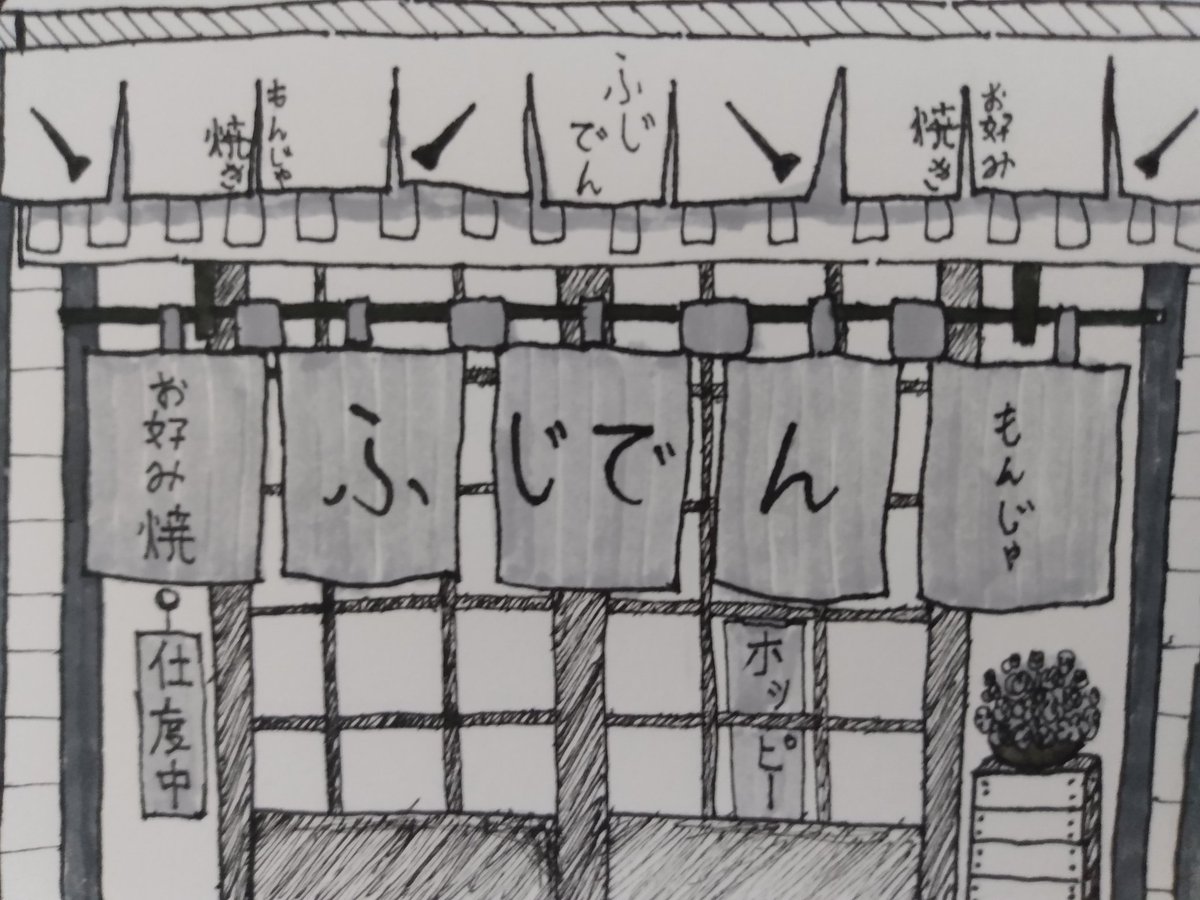 もんじゃ
焼き
ふじ
でん
お好み
焼き
お好み焼
ふじでん
もんじゃ
仕度中
ホッピー